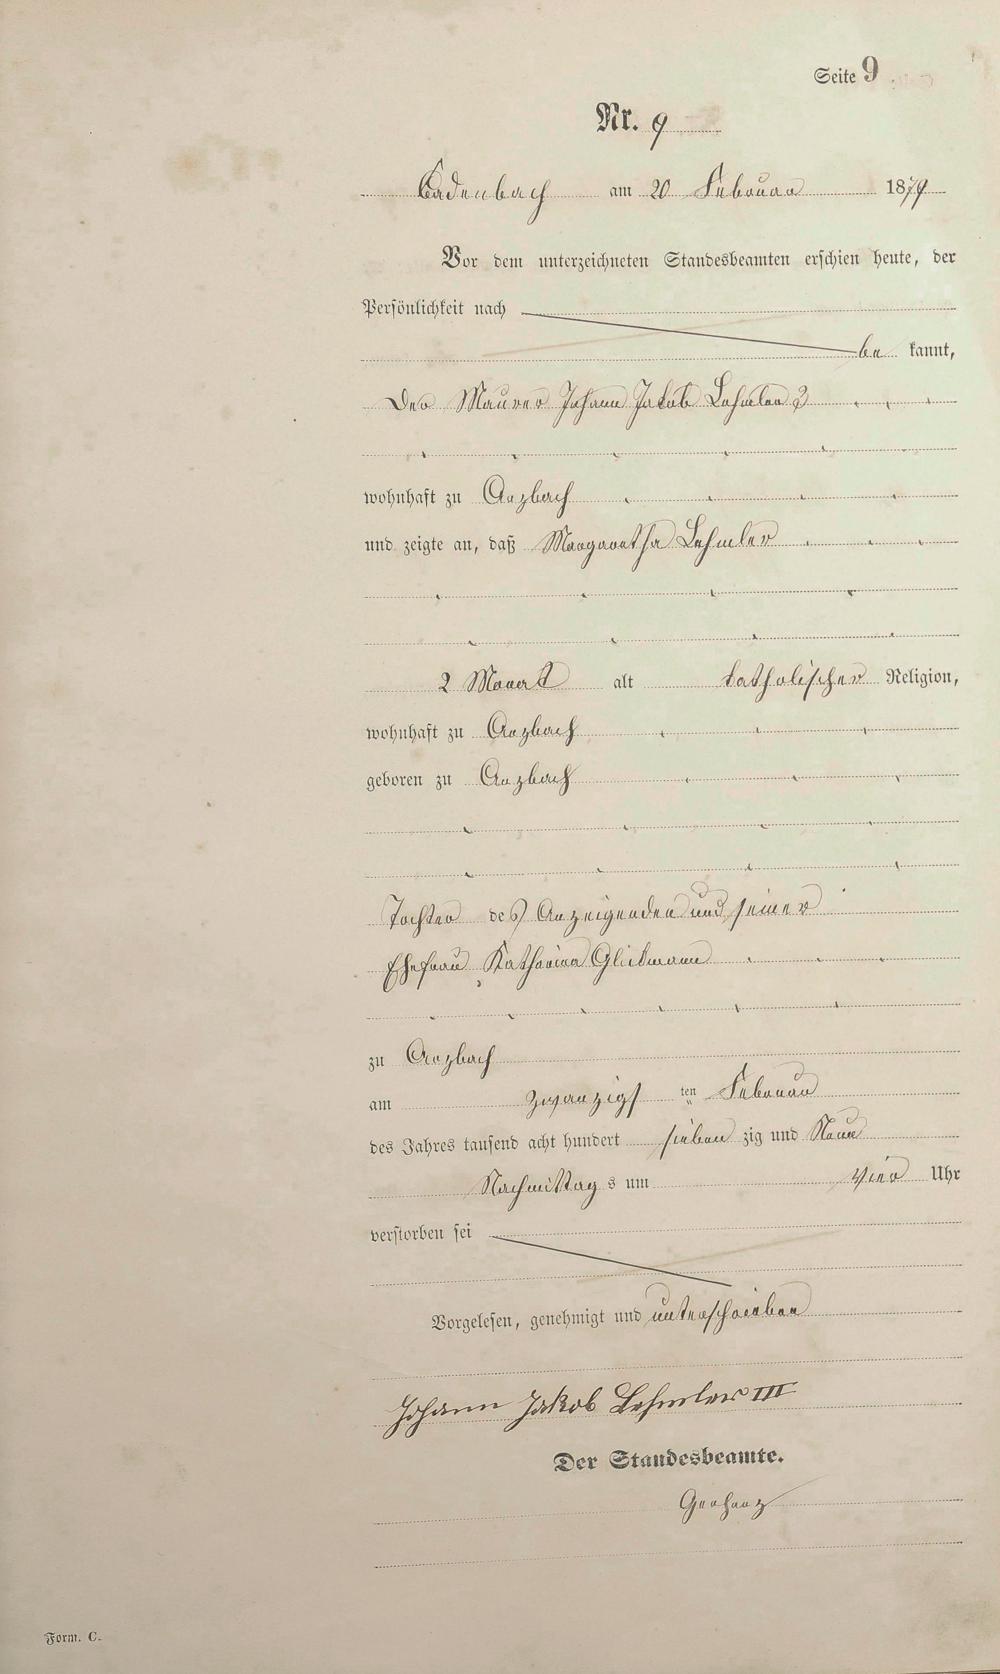 Seite 9
Nr. 9
Cadenbach am 20 Februar 1879
Vor dem unterzeichneten Standesbeamten erschien heute, der
Persönlichkeit nach
be kannt,
Der Maurer Johann Jakob Lehmler 3
wohnhaft zu Arzbach
und zeigte an, daß Margaretha Lehmler
2 Monat alt katholischer Religion,
wohnhaft zu Arzbach
geboren zu Arzbach
Tochter des Anzeigenden und seiner
Ehefrau Katharina Glickmann
zu Arzbach
am zwanzigs ten Februar
des Jahres tausend acht hundert sieben zig und Neun
Nachmittag s um vier Uhr
verstorben sei
Vorgelesen, genehmigt und unterschrieben
Johann Jakob Lehmler III
Der Standesbeamte.
Gerharz
Form. C.